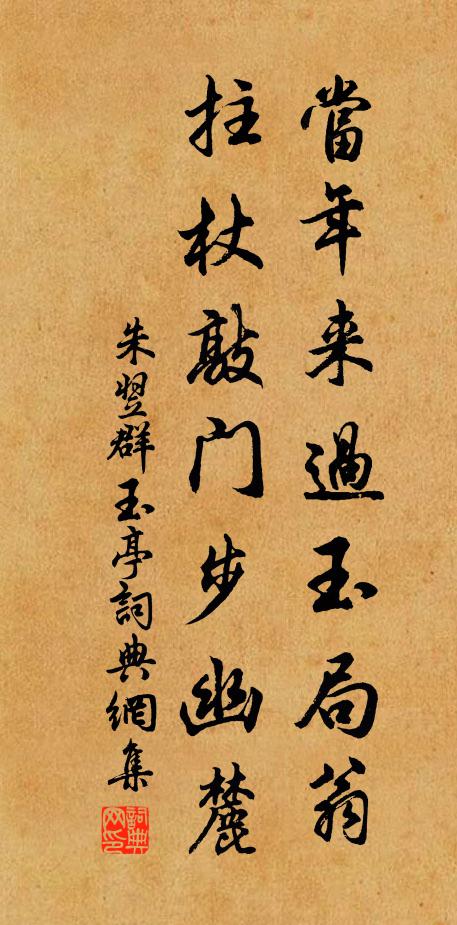 當年来過玉局翁
拄杖敲門步幽麓
朱翌群玉亭詞典網集
詞典网印